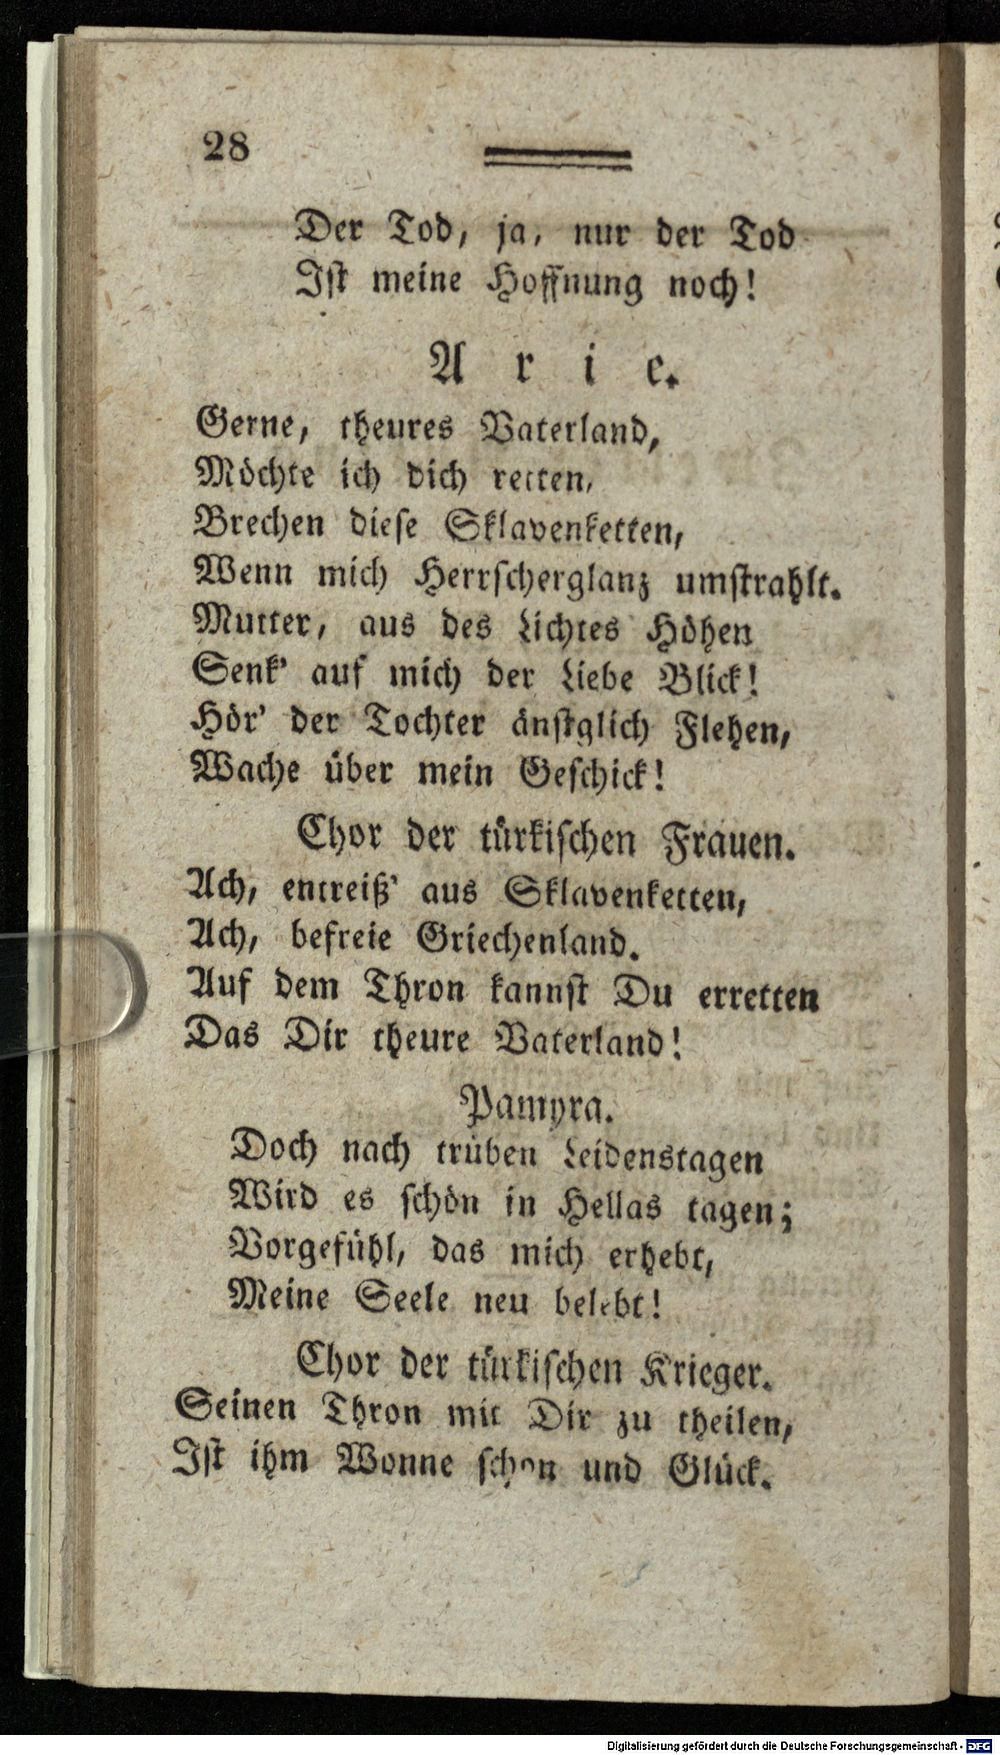 28
Der Tod, ja, nur der Tod
Ist meine Hoffnung noch!
Arie.
Gerne, theures Vaterland,
Möchte ich dich retten,
Brechen diese Sklavenketten,
Wenn mich Herrscherglanz umstrahlt.
Mutter, aus des Lichtes Höhen
Senk' auf mich der Liebe Blick!
Hör' der Tochter änstglich Flehen,
Wache über mein Geschick!
Chor der türkischen Frauen.
Ach, entreiß' aus Sklavenketten,
Ach, befreie Griechenland.
Auf dem Thron kannst Du erretten
Das Dir theure Vaterland!
Pamyra.
Doch nach trüben Leidenstagen
Wird es schön in Hellas tagen;
Vorgefühl, das mich erhebt,
Meine Seele neu belebt!
Chor der türkischen Krieger.
Seinen Thron mit Dir zu theilen,
Ist ihm Wonne schon und Glück.
Digitalisierung gefördert durch die Deutsche Forschungsgemeinschaft - DFG